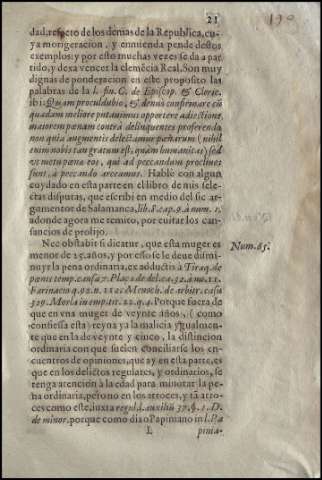 21
190
dad, respeto de los demas de la Republica, cu-
ya morigeracion, y enmienda pende destos
exemplos: y por esto muchas vezes se da a par
tido, y dexa vencer la clemēcia Real. Son muy
dignas de ponderacion en este proposito las
palabras de la l. fin. C. de Episcop. & Cleric.
ibi: Quam proculdubio, & denuò confirmare cū
quadam meliore putauimus opportere adiectione,
maiorem pœnam contra delinquentes proferendo,
non quia augmentis delectamur pœnarum (nihil
enim nobis tan gratum est, quàm humanitas) sed
vt metu pœnæ eos, qui ad peccandum procliues
sunt, à peccando arceamus. Hablè con algun
cuydado en esta parte en el libro de mis sele-
ctas disputas, que escribi en medio del sic ar-
gumentor de Salamanca, lib. 8. cap. 9. à num. 1.
adonde agora me remito, por euitar los can-
sancios de prolijo.
Nec obstabit si dicatur, que esta muger es
Num. 85.
menor de 25. años, y por esso se le deue dismi-
nuyr la pena ordinaria, ex adductis à Tiraq. de
pœnis temp. causa 7. Placa de delict. c. 32. à nu. 12.
Farinac. q. 92. n. 112. Menoch. de arbitr. casu
329. Morla in emp. tit. 11. q. 4. Porque fuera de
que en vna muger de veynte años, (como
confiessa esta) reyna ya la malicia ygualmen-
te que en la de veynte y cinco, la distincion
ordinaria con que suelen conciliarse los en-
cuentros de opiniones, que ay en esta parte, es
que en los delictos regulares, y ordinarios, se
tenga atenciõ à la edad para minorar la pe-
na ordinaria, pero no en los atroces, y tã atro-
ces como este, iuxta regul. l. auxilii 37. §. 1. D.
de minor. porque como dixo Papiniano in l. Pa
L
pinia-